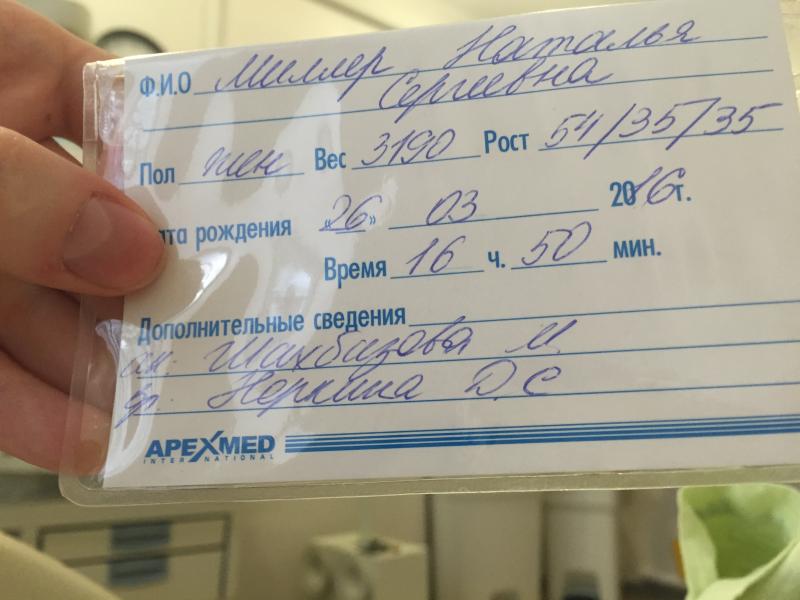 Ф.И.О Миллер Наталья
Сергеевна
Пол жен Вес 3190 Рост 54/35/35
та рождения «26» 03 2016 г.
Время 16 ч. 50 мин.
Дополнительные сведения
ак. Шахбазова М.
вр. Неркина Д.С
APEXMED
INTERNATIONAL